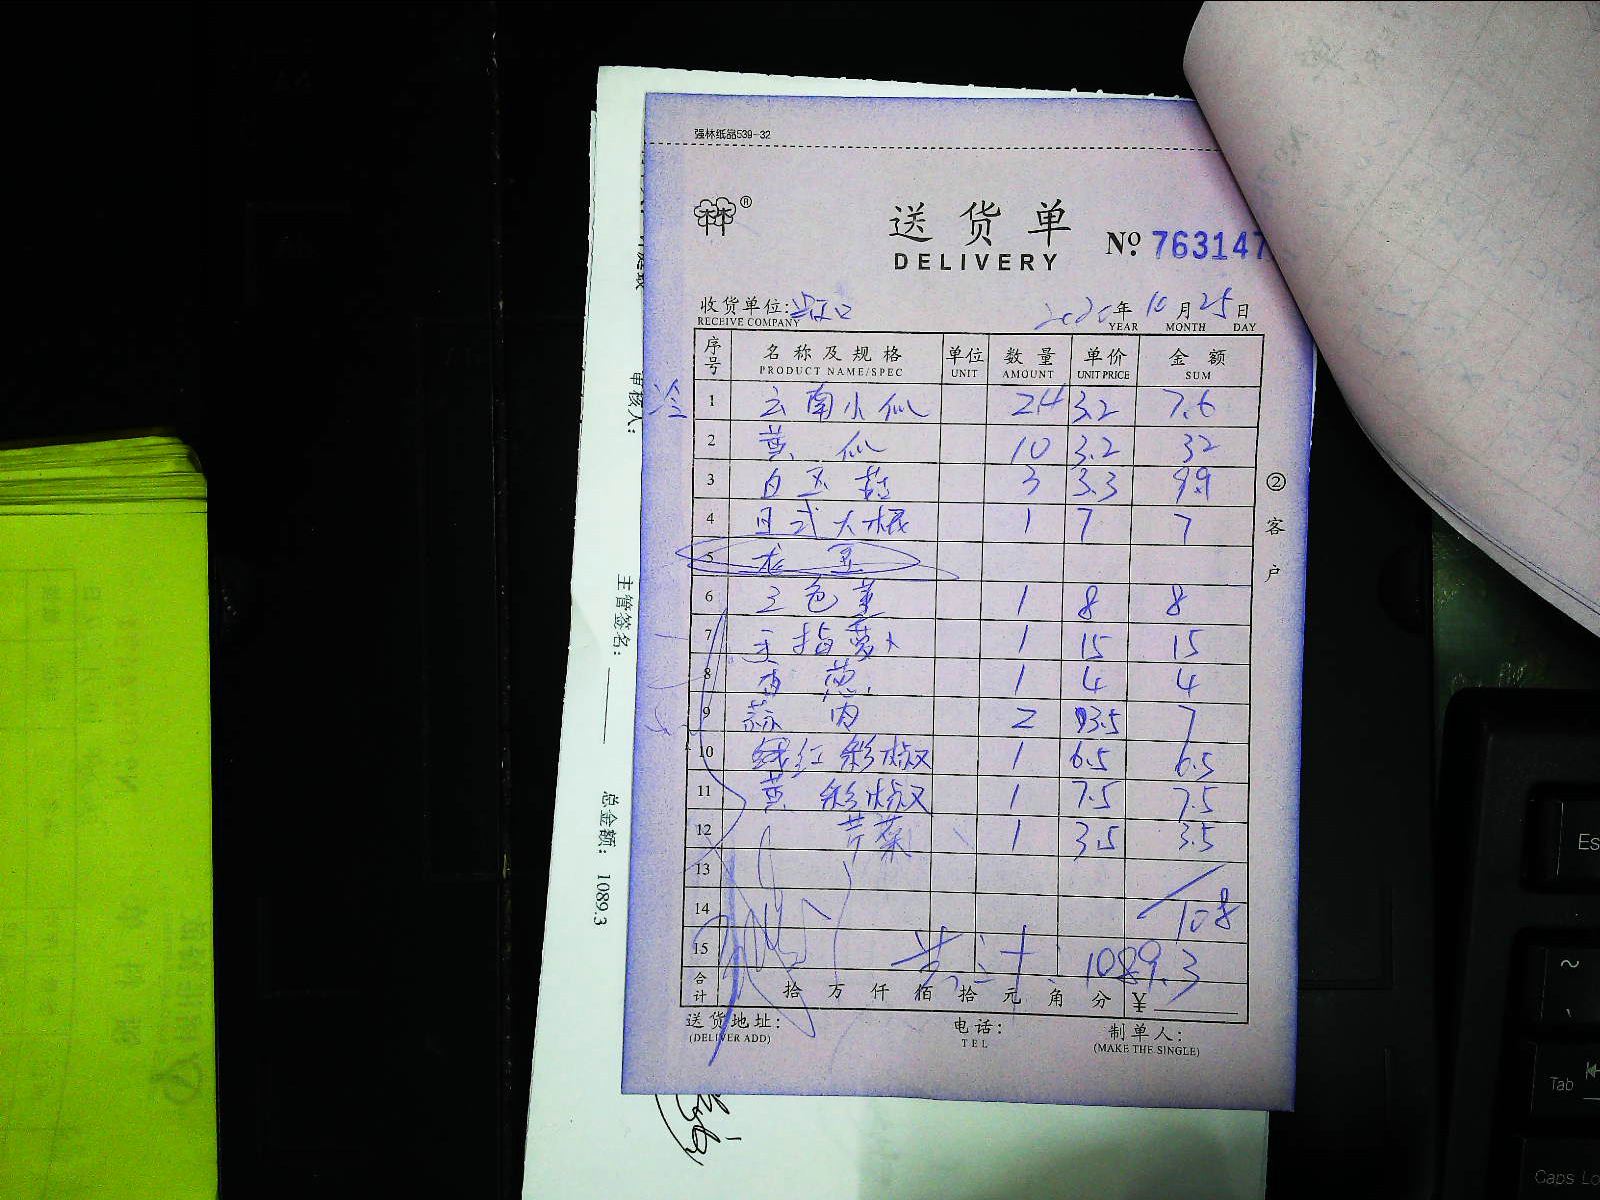 强林纸品539-32
林林®
送货单
DELIVERY
No. 763147
收货单位:
RECEIVE COMPANY
2020年 10月 25日
YEAR MONTH DAY
序号 名称及规格 单位 数量 单价 金额
PRODUCT NAME/SPEC UNIT AMOUNT UNIT PRICE SUM
冷
1 云南小仙 24 3.2 7.6
2 黄仙 10 3.2 32
3 白玉菇 3 3.3 9.9
4 日式大根 1 7 7
5
6 三色堇 1 8 8
7 手指萝卜 1 15 15
8 香葱 1 4 4
9 蒜肉 2 3.5 7
10 红彩椒 1 6.5 6.5
11 黄彩椒 1 7.5 7.5
12 芹菜 1 3.5 3.5
13
14 108
15 共计: 1089.3
合计 拾万仟佰拾元角分 ¥
送货地址:
(DELIVER ADD)
电话:
TEL
制单人:
(MAKE THE SINGLE)
②客户
审核人:
主管签名:
总金额: 1089.3
Es
~
Tab
Caps Lo